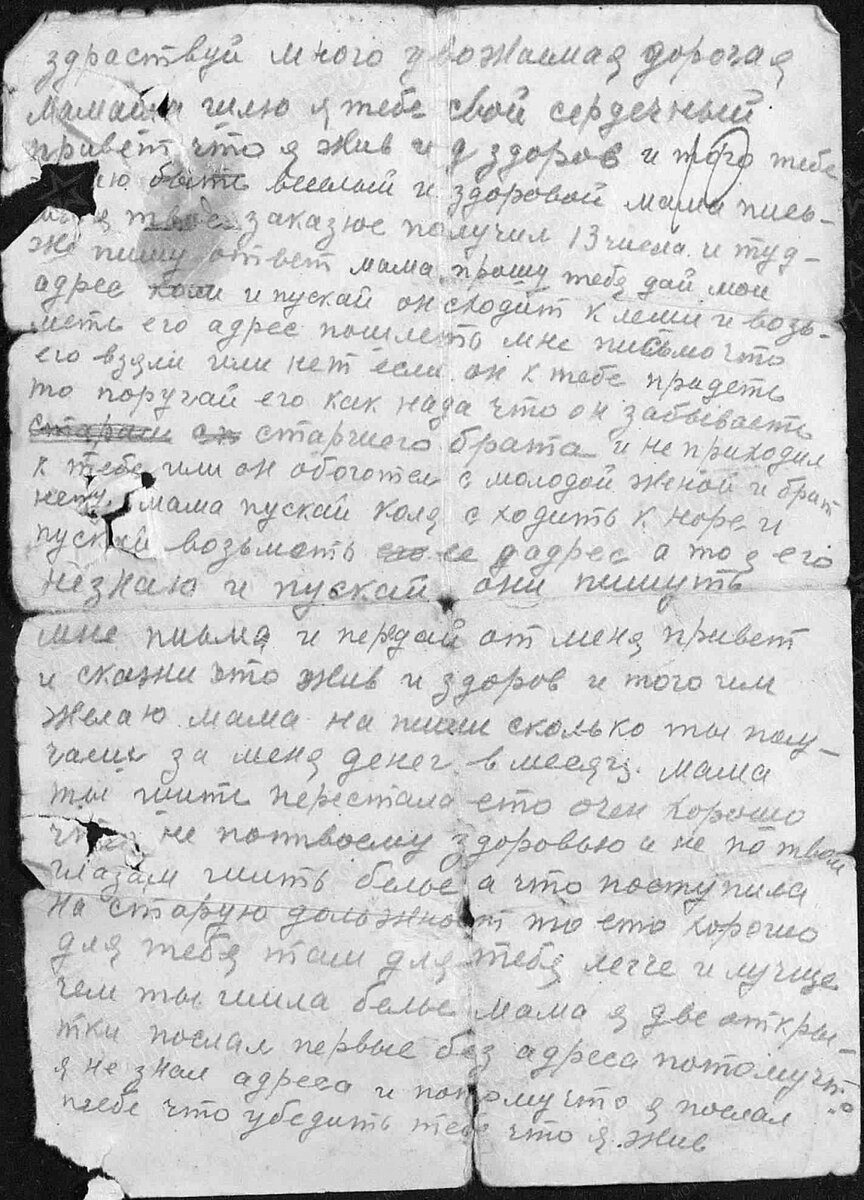 здраствуй много уважаемая дорогая
мамаша шлю я тебе свой сердечный
привет что я жив и здоров и того тебе
быть веселый и здоровой мама пись-
заказное получил 13 числа и туд-
же пишу ответ мама прошу тебя дай мой
адрес коли и пускай он сходит к леши и возь-
меть его адрес пошлеть мне письмо что
его взяли или нет если он к тебе придеть
то поругай его как нада что он забываеть
старшего брата и не приходил
к тебе или он обоготел с молодой женой и брат
нету мама пускай коля сходить к норе и
пускай возьметь ее адрес а то я его
незнаю и пускай они пишуть
мне письма и передай от меня привет
и скажи что жив и здоров и того им
желаю мама на пиши сколько ты полу-
чаешь за меня денег в месяц. мама
ты шить перестала ето очен хорошо
не потвоему здоровью и не по твоем
глазам шить белье а что поступила
на старую должност то ето хорошо
для тебя там для тебя легче и лучше
чем ты шила белье мама я две откры-
тки послал первые без адреса потомучто
я не знал адреса и потомучто я послал
тебе что убедить тебе что я жив